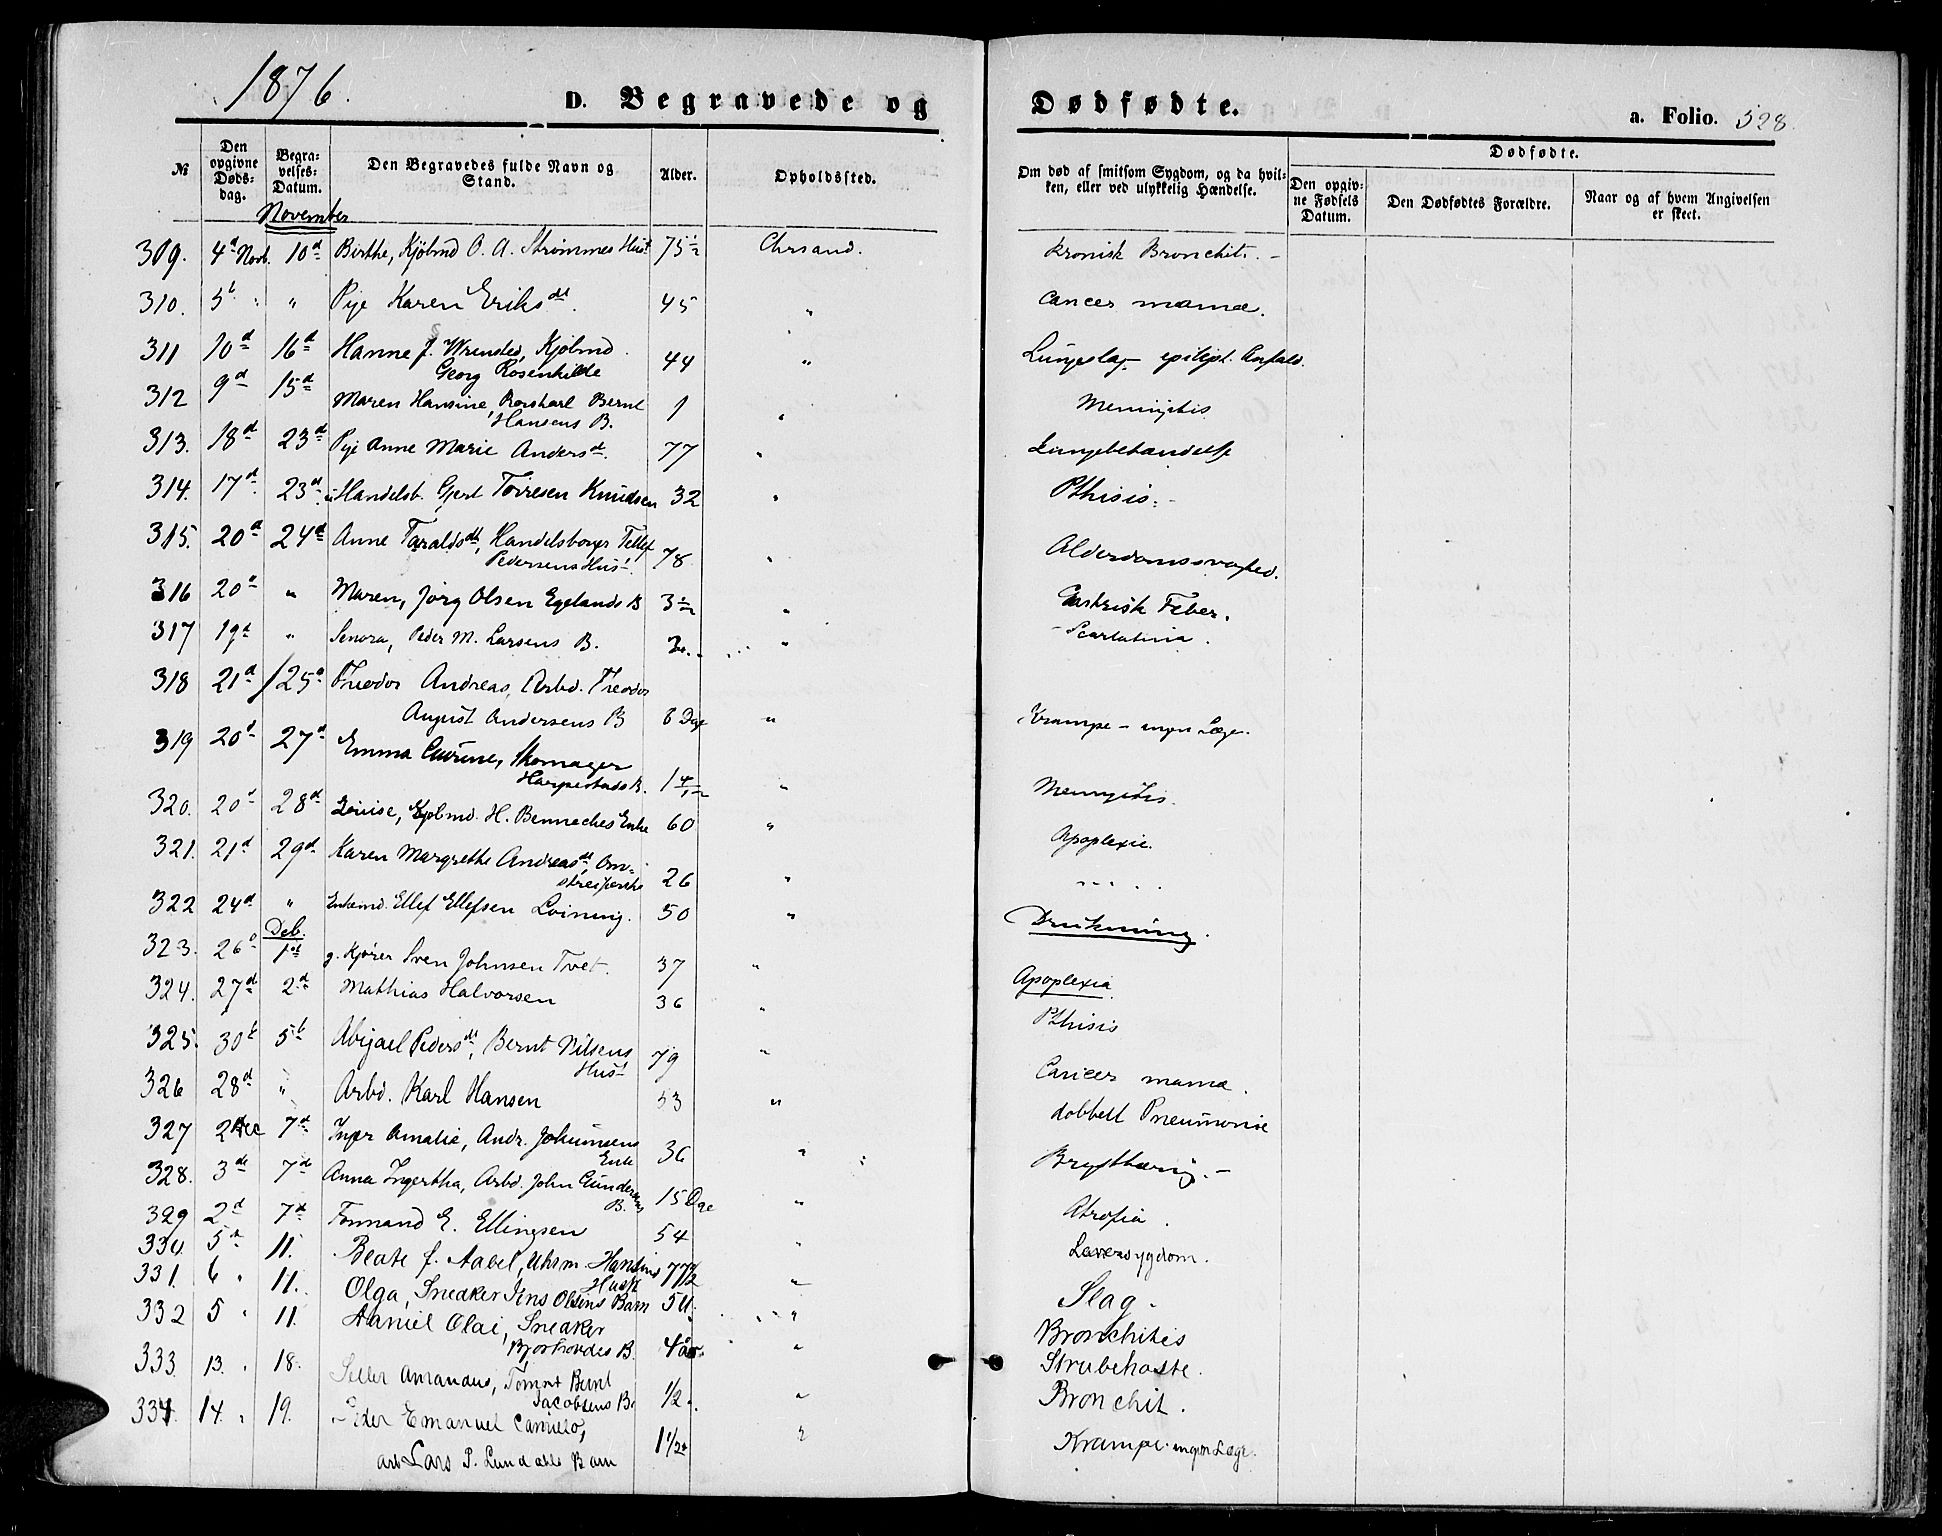 1876.
D. Begravede og
Dødfødte.
a. Folio. 328.
№
Den opgivne Døds-dag.
Begra-velses-Datum.
Den Begravedes fulde Navn og Stand.
Alder.
Opholdssted.
Om død af smitsom Sygdom, og da hvil-ken, eller ved ulykkelig Hændelse.
Dødfødte.
Den opgiv-ne Fødsels Datum.
Den Dødfødtes Forældre.
Naar og af hvem Angivelsen er skeet.
November
309. 4d Novb. 10d Birthe, Kjøbmd O. A. Strømmes Hust 75½ Chrsand. kronisk Bronchit. -
310. 5t " " Pige Karen Eriksdt. 45 " Cancer mamæ.
311 10d 16d Hanne f. Wrensted, Kjøbmd.
Georg Rosenkilde 44 " Lungeslag - epilept. Anfald.
312 9d 15d Maren Hansine, Bernt
Hansens B. 1 " Meningitis
313. 18d 23d Pige Anne Marie Andersdt. 77 "
314. 17d 23d Handelsb. Gert Torresen Knudsen 32 " Pthisis. -
315. 20d 24d Anne Taraldsdt, Handelsborger Tellef
Pedersens Hust. 78 " Alderdomssvaghed.
316 20d " Maren, Jørg Olsen Egelands B 3½ " Gastrisk Feber.
317 19d " Senora, Peder M. Larsens B. " Scarlatina.
318 21d 25d Theodor Andreas, Arbd. Theodor
August Andersens B 8 Dage " Krampe - ingen Læge.
319 20d 27d Emma, Skomager
Harpestads B. 1 " Meningitis.
320. 20d 28d Louise, Kjøbmd. H. Benneches Enke 60 " Apoplexie.
321. 21d 29d Karen Margrethe Andreasdt, Om-
streiferske 26 " " . .
322 24d " Enkemd. Ellef Ellefsen Loining. 50 " Drukning.
Deb.
323. 26d 1st g. Kjører Sven Johnsen Tvet. 37 " Apoplexia
324. 27d 2d Mathias Halvorsen 36 " Pthisis
325. 30t 5t Abigael Pedersdt, Bernt Nilsens
Hust 79 " Cancer mamæ.
326 28d " Arbd. Karl Hansen 53 " dobbelt Pneumonie
327 2 Dec 7d Inger Amalie, Andr. Johnnsens
Enke 36 "
328. 3de 7de Anna Ingertha, Arbd. John Gundersens
B. 15 Dage " Atrofia.
329 2d 7d Formand E. Ellingsen 54 " Leversygdom.
330. 5t 11. Beate f. Aabel, Uhrm. Hansens
Hustr 77½ " Slag.
331. 6 " 11. Olga, Snedker Jens Olsens Barn " Bronchitis
332 5 " 11. Daniel Olai, Snedker
B. 4 " Strubehoste.
333. 13. " 18. Amandus, Tomt Bernt
Jacobsens B. 1/2 " Bronchit.
334. 14. " 19. Peder Emanuel Camillo,
arb Lars P. Lundahls Barn 1½ " Krampe. ingen Læge.